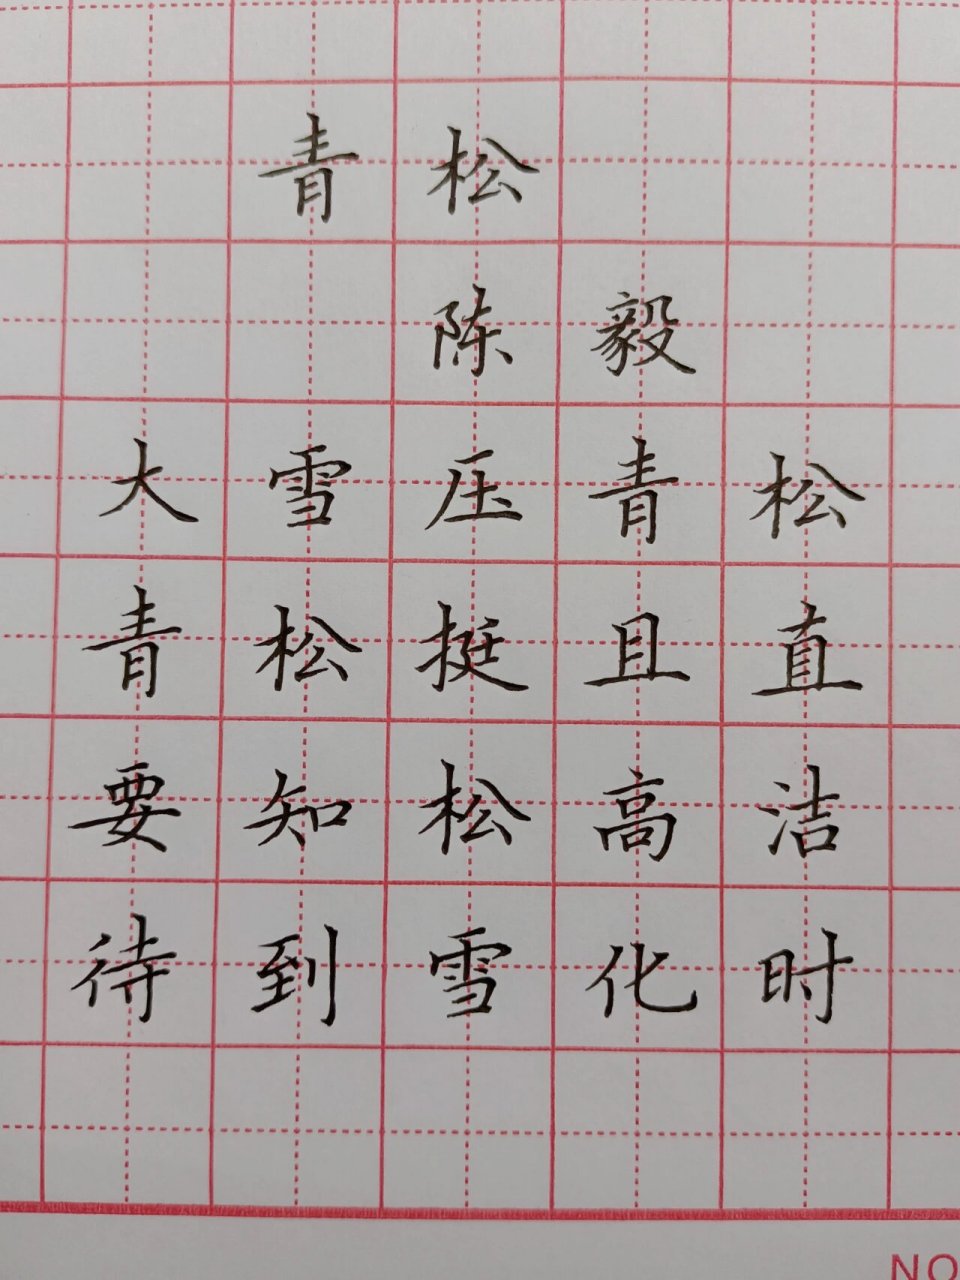 青松
陈毅
大雪压青松
青松挺且直
要知松高洁
待到雪化时
NO